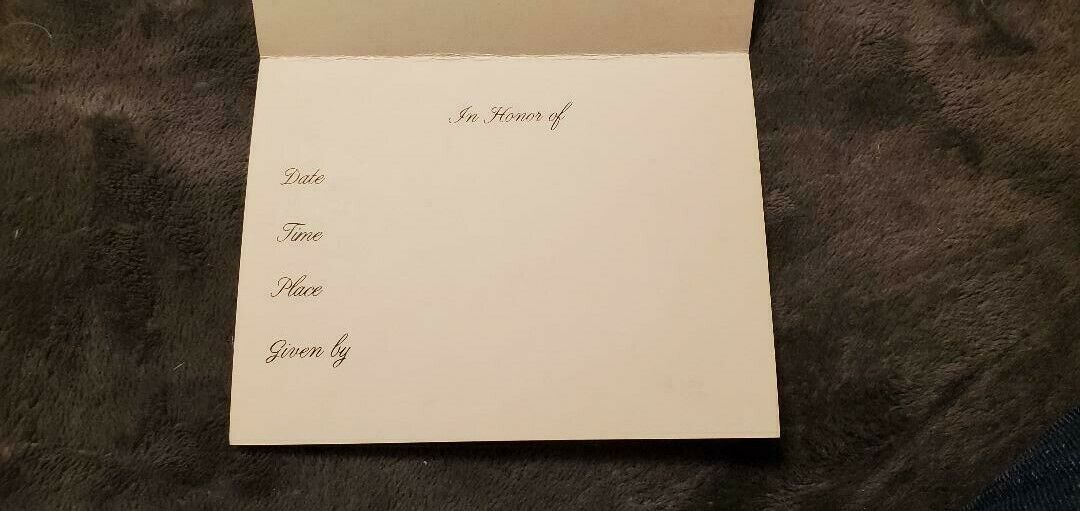 In Honor of
Date
Time
Place
Given by